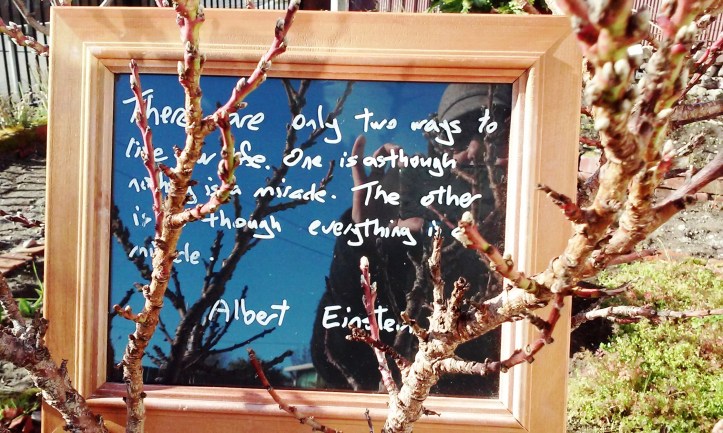 There are only two ways to
live your life. One is as though
nothing is a miracle. The other
is as though everything is a
miracle.
Albert Einstein